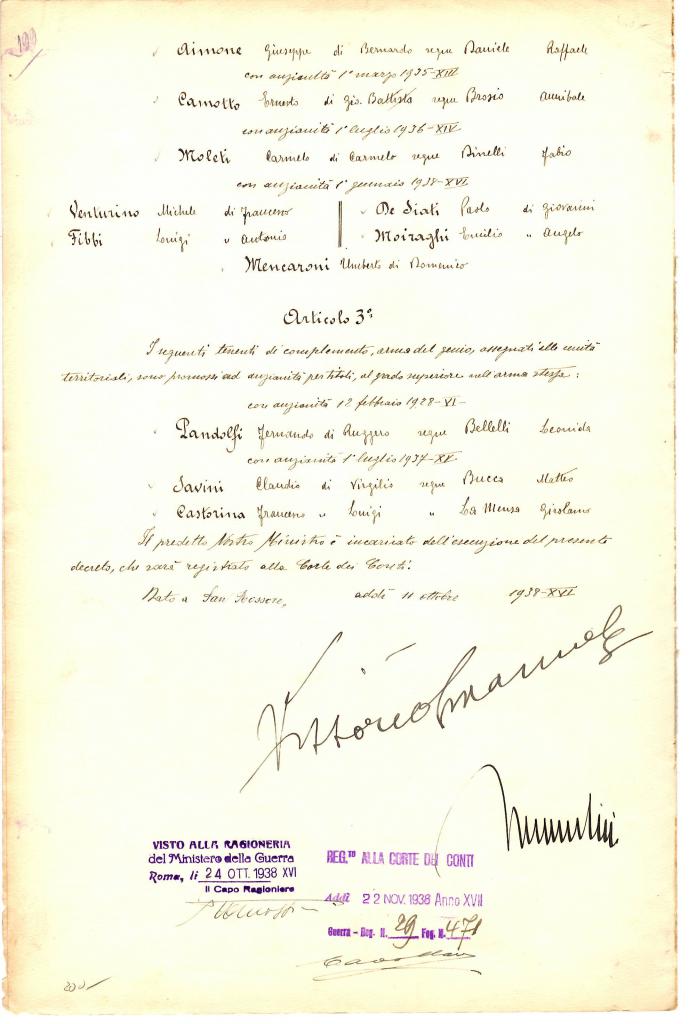 199
Aimone Giuseppe di Bernardo segue Daniele Raffaele
con anzianità 1° marzo 1935-XIII
Camotto Ernesto di Gio. Battista segue Brosio Annibale
con anzianità 1° luglio 1936-XIV
Moleti Carmelo di Carmelo segue Binelli Fabio
con anzianità 1° gennaio 1938-XVI
Venturino Michele di Francesco De Siati Paolo di Giovanni
Fibbi Luigi " Antonio Moiraghi Emilio " Angelo
Mencaroni Umberto di Domenico
Articolo 3°
I seguenti tenenti di complemento, arma del genio, assegnati alle unità
territoriali, sono promossi ad anzianità per titoli, al grado superiore nell'arma stessa:
con anzianità 12 febbraio 1928-VI-
Pandolfi Fernando di Ruggero segue Bellelli Leonida
con anzianità 1° luglio 1937-XV
Savini Claudio di Virgilio segue Bucca Matteo
Castorina Francesco " Luigi " La Mensa Girolamo
Il predetto Nostro Ministro è incaricato dell'esecuzione del presente
decreto, che sarà registrato alla Corte dei Conti.
Dato a San Rossore, addì 11 ottobre 1938-XVI
Vittorio Emanuele
Mussolini
VISTO ALLA RAGIONERIA
del Ministero della Guerra
Roma, li 24 OTT. 1938 XVI
Il Capo Ragioniere
REG.TO ALLA CORTE DEI CONTI
Addì 22 NOV. 1938 Anno XVII
Guerra - Reg. N. 29 Fog. N. 471